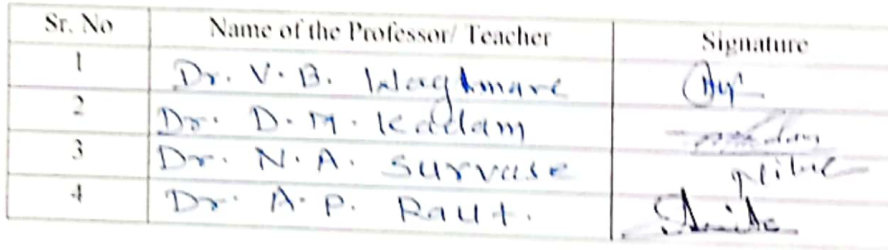 Sr. No Name of the Professor/ Teacher Signature
1 Dr. V. B. Waghmare
2 Dr. D. M. Kadam
3 Dr. N. A. Survase
4 Dr. A. P. Raut.